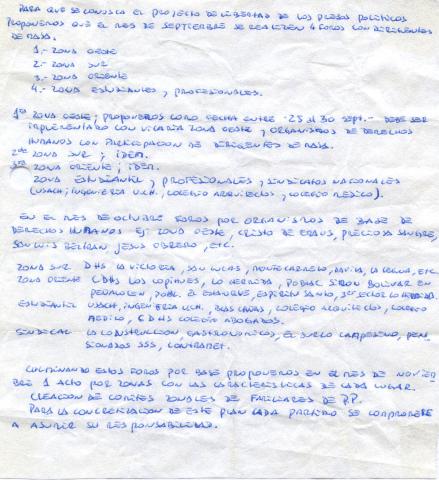 PARA QUE SE CONOSCA EL PROYECTO DE LIBERTAD DE LOS PRESOS POLITICOS
PROPONEMOS QUE EL MES DE SEPTIEMBRE SE REALIZEN 4 FOROS CON DIRIGENTES
DE MASA.
1.- ZONA OESTE
2.- ZONA SUR
3.- ZONA ORIENTE
4.- ZONA ESTUDIANTES Y PROFESIONALES.
1ª ZONA OESTE; PROPONEMOS COMO FECHA ENTRE 25 AL 30 SEPT.- DEBE SER
IMPLEMENTADO CON VICARIA ZONA OESTE Y ORGANISMOS DE DERECHOS
HUMANOS CON PARTICIPACION DE DIRIGENTES DE MASA.
2da ZONA SUR; IDEM.
ZONA ORIENTE; IDEM.
ZONA ESTUDIANTIL Y PROFESIONALES Y SINDICATOS NACIONALES
(USACH; INGENIERIA U.CH., COLEGIO ARQUITECTOS, COLEGIO MEDICO).
EN EL MES DE OCTUBRE FOROS POR ORGANISMOS DE BASE DE
DERECHOS HUMANOS EJ: ZONA OESTE, CRISTO DE EMAUS, PRECIOSA SANGRE,
SAN LUIS BELTRAN JESUS OBRERO, ETC.
ZONA SUR DHS LA VICTORIA, SAN LUCAS, MONTE CARMELO, DAVILA, LA LEGUA, ETC
ZONA ORIENTE CDHS LOS COPIHUES, LA HERMIDA, POBLAC SIMON BOLIVAR EN
PEÑALOLEN POBL. EL ESPIRITU SANTO, 3er SECTOR LO HERMIDA.
ESTUDIANTIL USACH, INGENIERIA UCH, BLAS CAÑAS, COLEGIO ARQUITECTO, COLEGIO
MEDICO, CDHS COLEGIO ABOGADOS.
SINDICAL LA CONSTRUCCION GASTRONOMICOS, EL SURCO CAMPESINO, PEN
SIONADOS SSS, CONTRAMET.
CULMINANDO ESTOS FOROS POR BASE PROPONEMOS EN EL MES DE NOVIEM
BRE 1 ACTO POR ZONAS CON LAS CARACTERISTICAS DE CADA LUGAR.
CREACION DE COMITES ZONALES DE FAMILIARES DE P.P.
PARA LA CONCRETIZACION DE ESTE PLAN CADA PARTIDO SE COMPROMETE
A ASUMIR SU RESPONSABILIDAD.